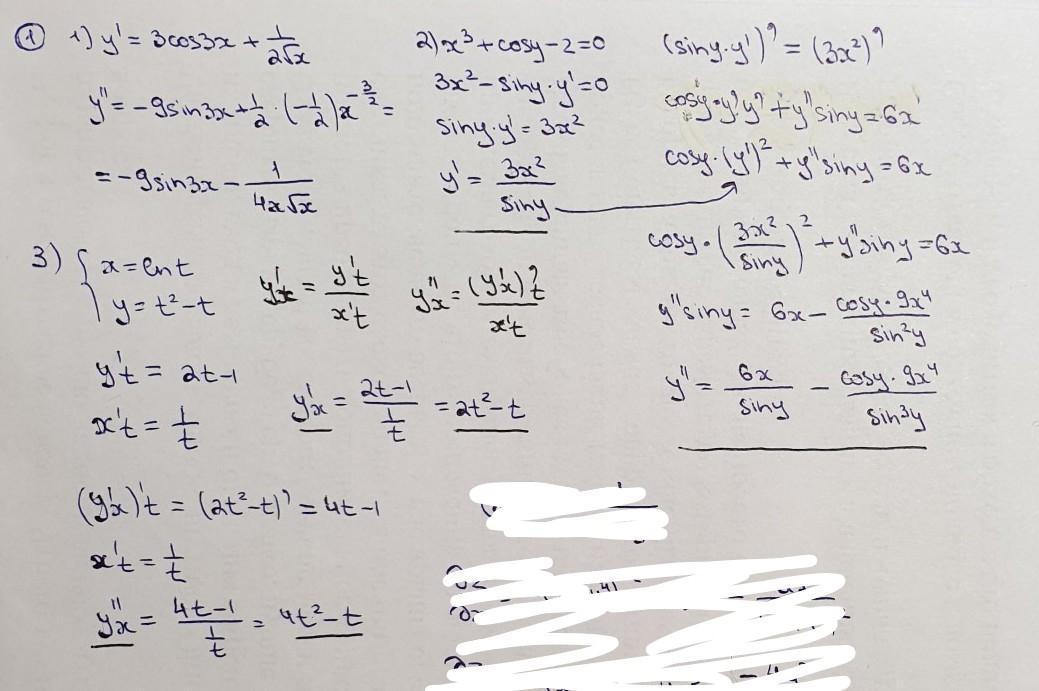 ① 1) y' = 3cos3x + 1/(2√x)
y'' = -9sin3x + 1/2 · (-1/2) x^(-3/2) =
= -9sin3x - 1/(4x√x)
2) x³ + cosy - 2 = 0
3x² - siny · y' = 0
siny · y' = 3x²
y' = 3x²/siny
(siny · y')' = (3x²)'
cosy · y' · y' + y'' siny = 6x
cosy · (y')² + y'' siny = 6x
cosy · (3x²/siny)² + y'' siny = 6x
y'' siny = 6x - (cosy · 9x⁴)/sin²y
y'' = 6x/siny - (cosy · 9x⁴)/sin³y
3) { x = ln t
y = t² - t
y'x = y't/x't
y''x = (y'x)'t/x't
y't = 2t-1
x't = 1/t
y'x = (2t-1)/(1/t) = 2t² - t
(y'x)'t = (2t² - t)' = 4t - 1
x't = 1/t
y''x = (4t-1)/(1/t) = 4t² - t